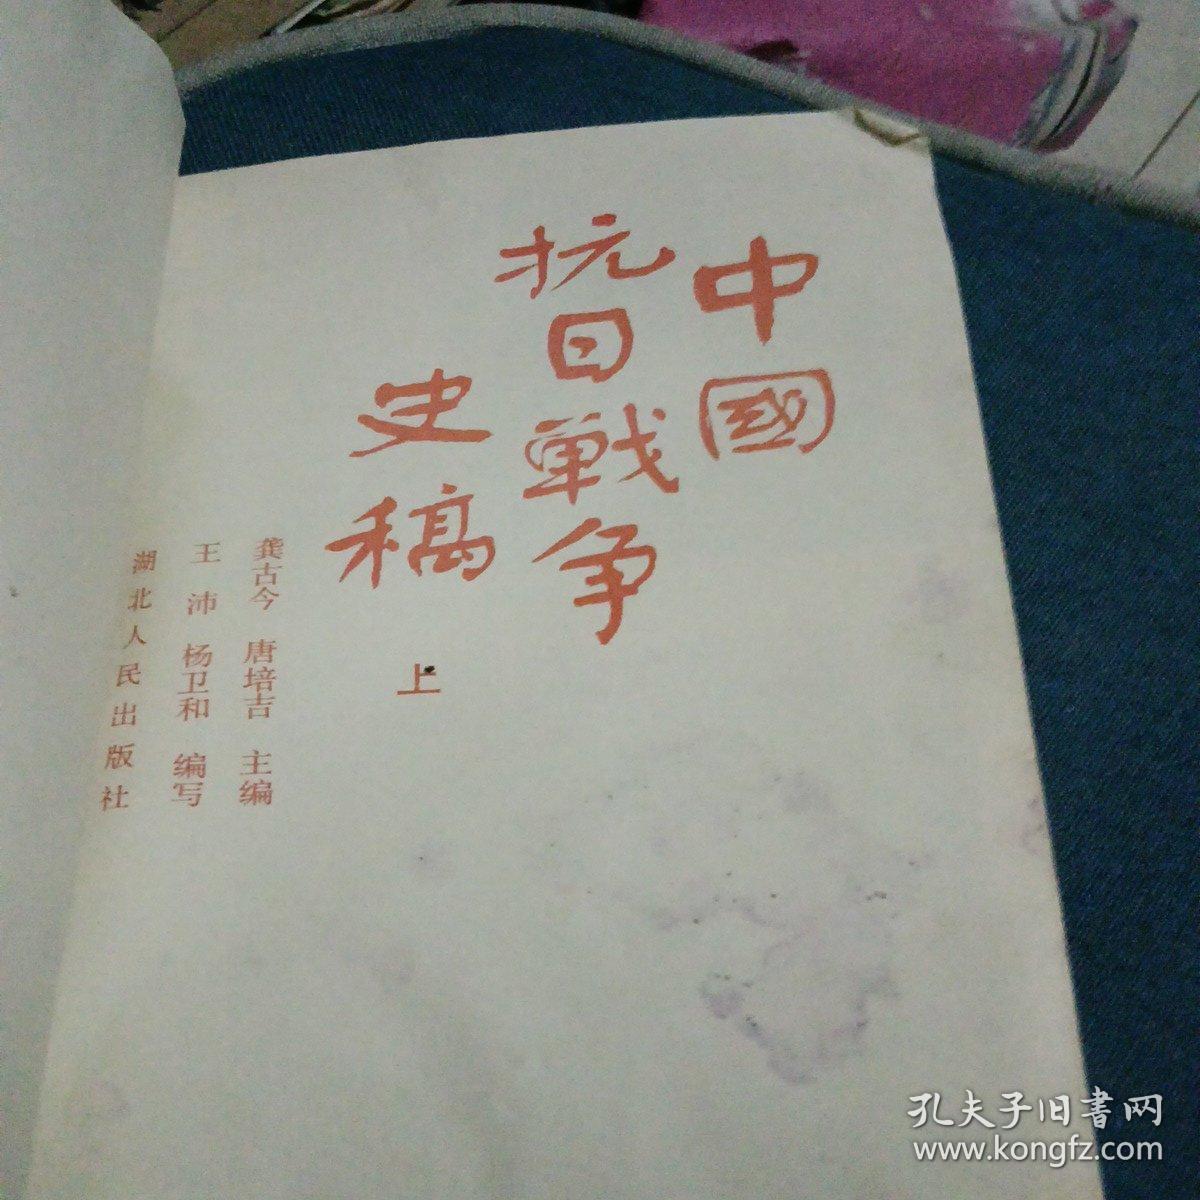 中國
抗日戦争
史稿
上
龚古今 唐培吉 主编
王沛 杨卫和 编写
湖北人民出版社
孔夫子旧書网
www.kongfz.com